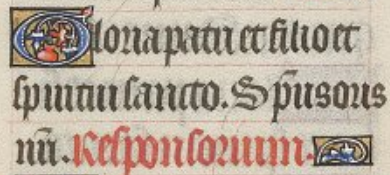 Gloria patri et filio et
spiritui sancto. Sp̄us oris
nr̄i. Responsorium.